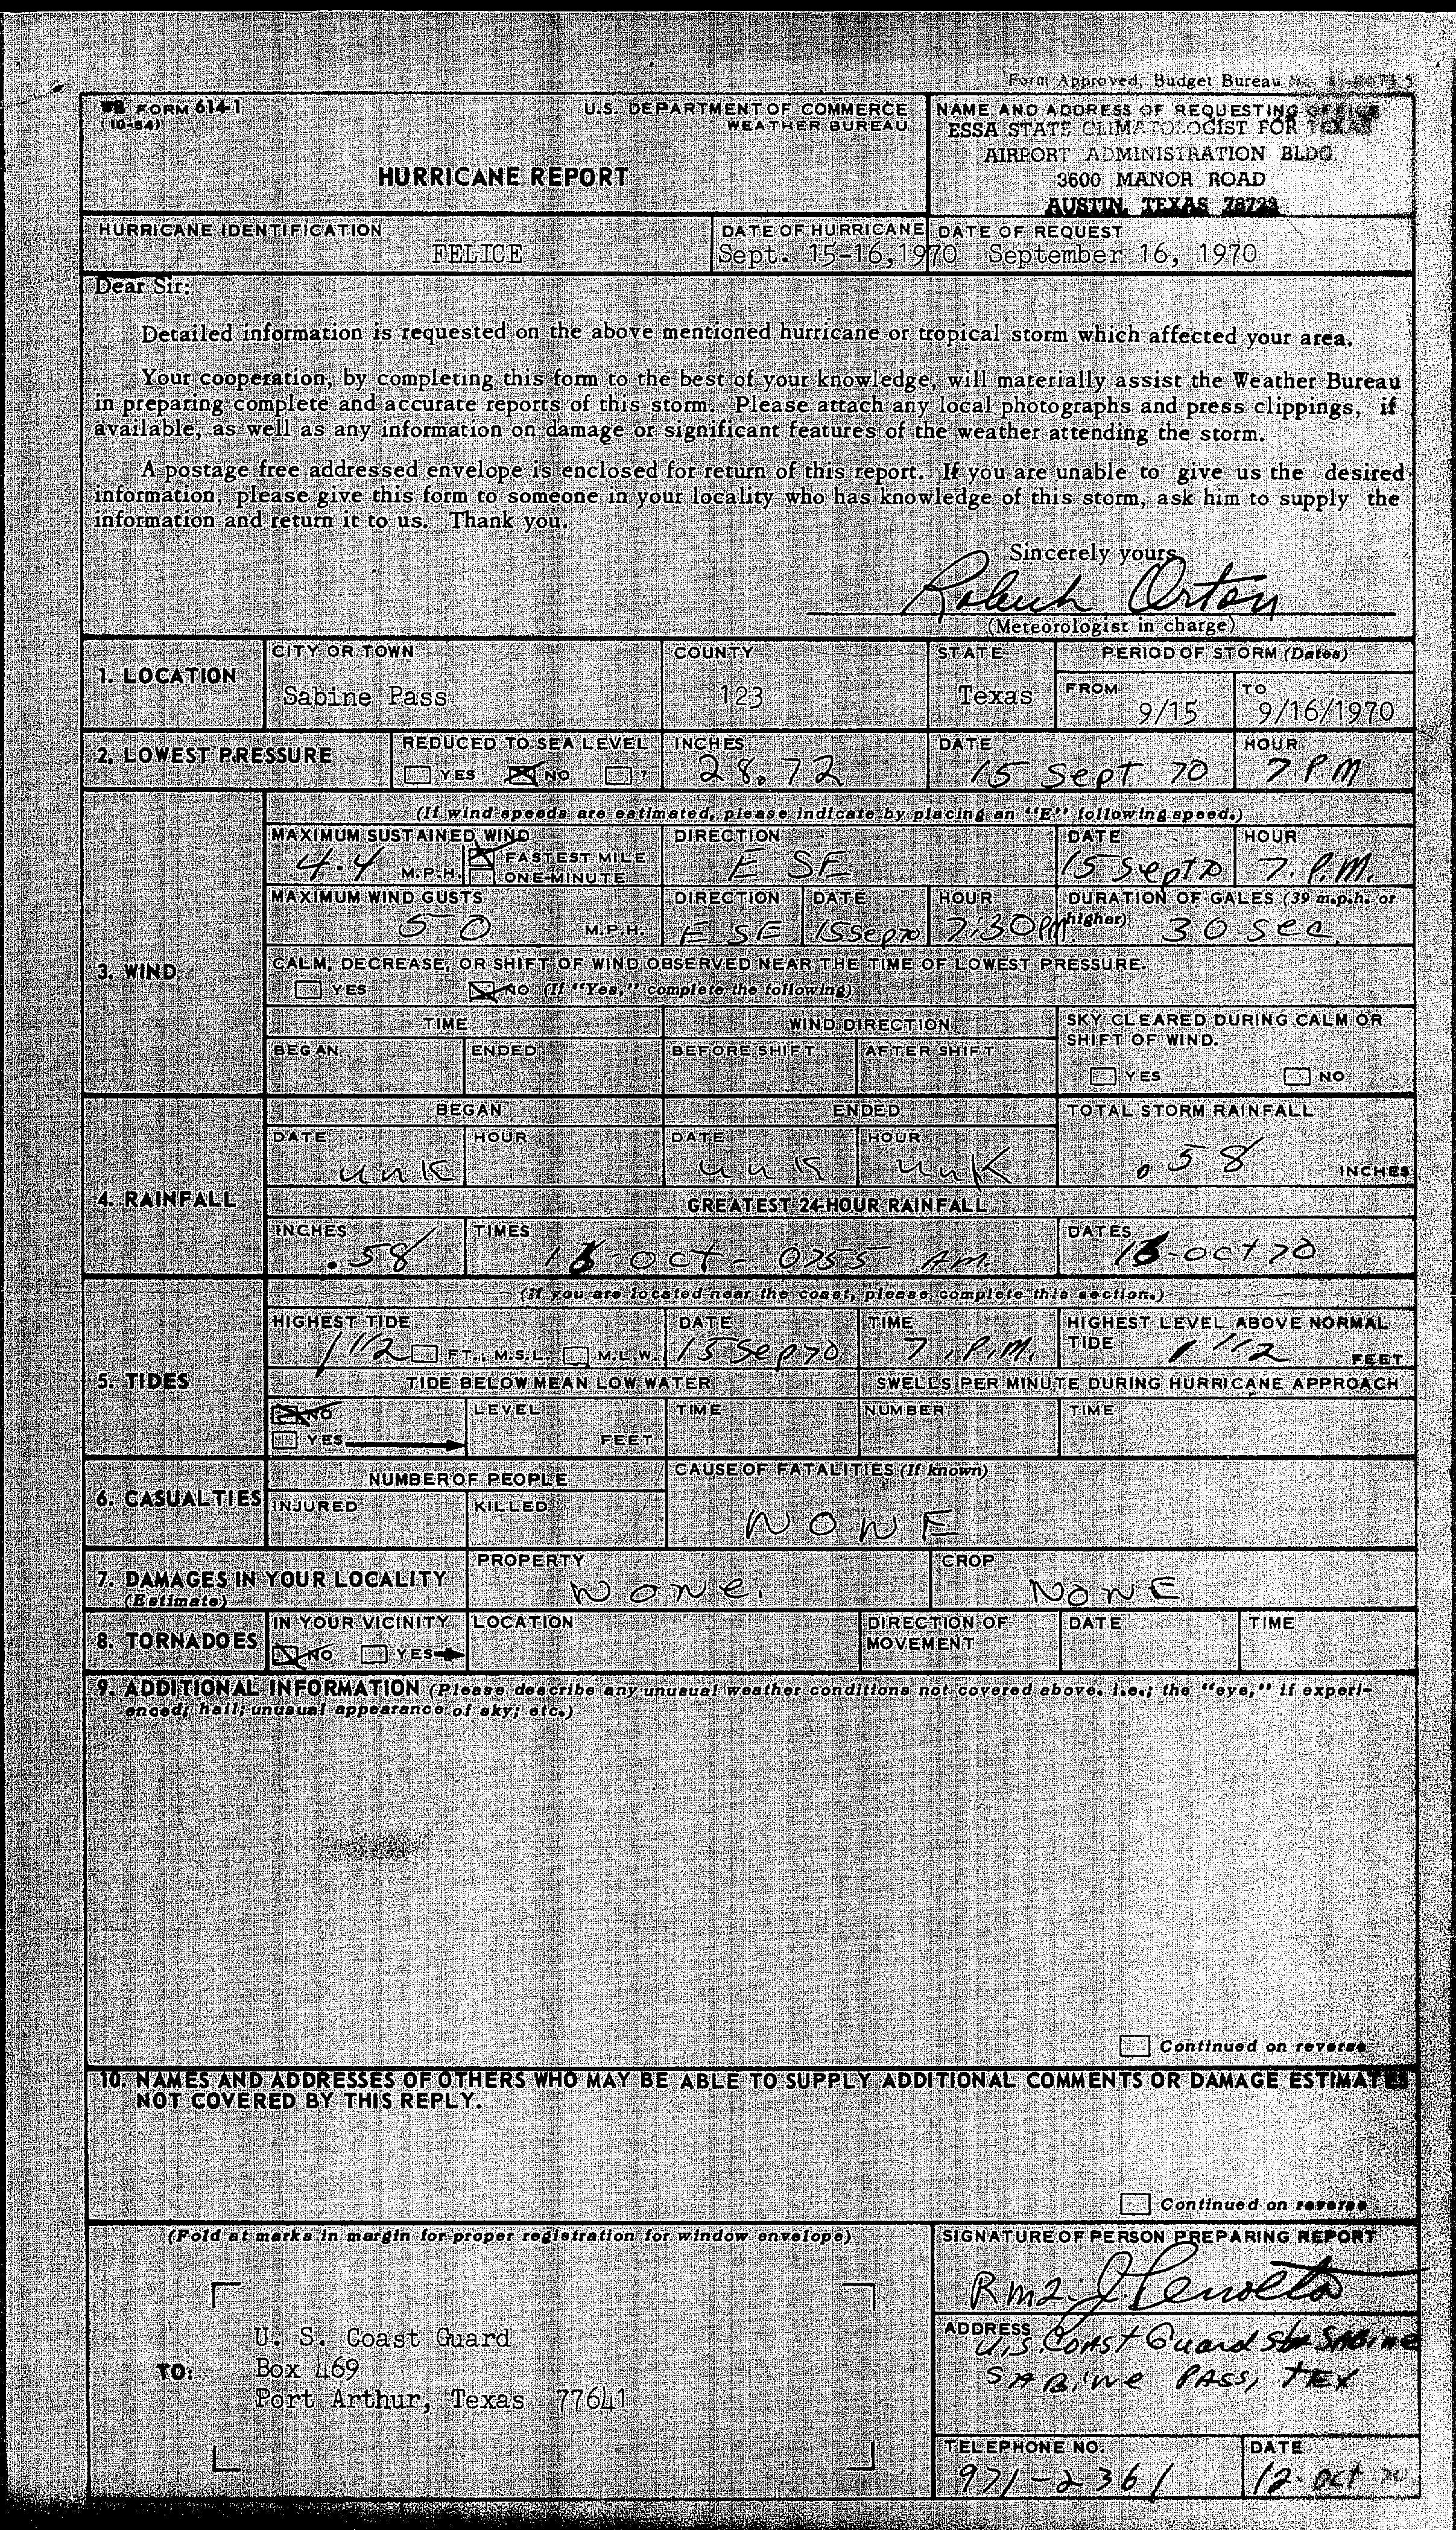 Form Approved, Budget Bureau
WB FORM 614-1
(10-64)
U.S. DEPARTMENT OF COMMERCE
WEATHER BUREAU
HURRICANE REPORT
NAME AND ADDRESS OF REQUESTING OFFICE
ESSA STATE CLIMATOLOGIST FOR TEXAS
AIRPORT ADMINISTRATION BLDG.
3600 MANOR ROAD
AUSTIN, TEXAS 78723
HURRICANE IDENTIFICATION
FELICE
DATE OF HURRICANE
Sept. 15-16,1970
DATE OF REQUEST
September 16, 1970
Dear Sir:
Detailed information is requested on the above mentioned hurricane or tropical storm which affected your area.
Your cooperation, by completing this form to the best of your knowledge, will materially assist the Weather Bureau
in preparing complete and accurate reports of this storm. Please attach any local photographs and press clippings, if
available, as well as any information on damage or significant features of the weather attending the storm.
A postage free addressed envelope is enclosed for return of this report. If you are unable to give us the desired
information, please give this form to someone in your locality who has knowledge of this storm, ask him to supply the
information and return it to us. Thank you.
Sincerely yours,
Orton
(Meteorologist in charge)
1. LOCATION
CITY OR TOWN
Sabine Pass
COUNTY
123
STATE
Texas
PERIOD OF STORM (Dates)
FROM
9/15
TO
9/16/1970
2. LOWEST PRESSURE
REDUCED TO SEA LEVEL
YES NO ?
INCHES
28.72
DATE
15 Sept 70
HOUR
7 PM
3. WIND
(If wind speeds are estimated, please indicate by placing an "E" following speed.)
MAXIMUM SUSTAINED WIND
4.4 M.P.H.
FASTEST MILE
ONE-MINUTE
DIRECTION
E SE
DATE
15 Sept 70
HOUR
7. P.M.
MAXIMUM WIND GUSTS
50 M.P.H.
DIRECTION
E SE
DATE
15 Sep 70
HOUR
7:30 PM
DURATION OF GALES (39 m.p.h. or higher)
30 sec
CALM, DECREASE, OR SHIFT OF WIND OBSERVED NEAR THE TIME OF LOWEST PRESSURE.
YES NO (If "Yes," complete the following)
TIME
BEGAN
ENDED
WIND DIRECTION
BEFORE SHIFT
AFTER SHIFT
SKY CLEARED DURING CALM OR
SHIFT OF WIND.
YES NO
4. RAINFALL
BEGAN
DATE
HOUR
unk
ENDED
DATE
unk
HOUR
unk
TOTAL STORM RAINFALL
.58 INCHES
GREATEST 24-HOUR RAINFALL
INCHES
.58
TIMES
oct - 0755 AM.
DATES
-oct 70
5. TIDES
(If you are located near the coast, please complete this section.)
HIGHEST TIDE
1 1/2 FT., M.S.L. M.L.W.
DATE
15 Sep 70
TIME
7. P.M.
HIGHEST LEVEL ABOVE NORMAL
TIDE
1 1/2 FEET
TIDE BELOW MEAN LOW WATER
NO
YES
LEVEL
FEET
TIME
SWELLS PER MINUTE DURING HURRICANE APPROACH
NUMBER
TIME
6. CASUALTIES
NUMBER OF PEOPLE
INJURED
KILLED
CAUSE OF FATALITIES (If known)
NONE
7. DAMAGES IN YOUR LOCALITY
(Estimate)
PROPERTY
None.
CROP
NONE
8. TORNADOES
IN YOUR VICINITY
NO YES
LOCATION
DIRECTION OF
MOVEMENT
DATE
TIME
9. ADDITIONAL INFORMATION (Please describe any unusual weather conditions not covered above. i.e.; the "eye," if experi-
enced; hail; unusual appearance of sky; etc.)
Continued on reverse
10. NAMES AND ADDRESSES OF OTHERS WHO MAY BE ABLE TO SUPPLY ADDITIONAL COMMENTS OR DAMAGE ESTIMATES
NOT COVERED BY THIS REPLY.
Continued on reverse
(Fold at marks in margin for proper registration for window envelope)
TO:
U. S. Coast Guard
Box 469
Port Arthur, Texas 77641
SIGNATURE OF PERSON PREPARING REPORT
RM2
ADDRESS
U.S Coast Guard Sta SABINE
SABINE PASS, TEX
TELEPHONE NO.
971-2361
DATE
12-oct 70